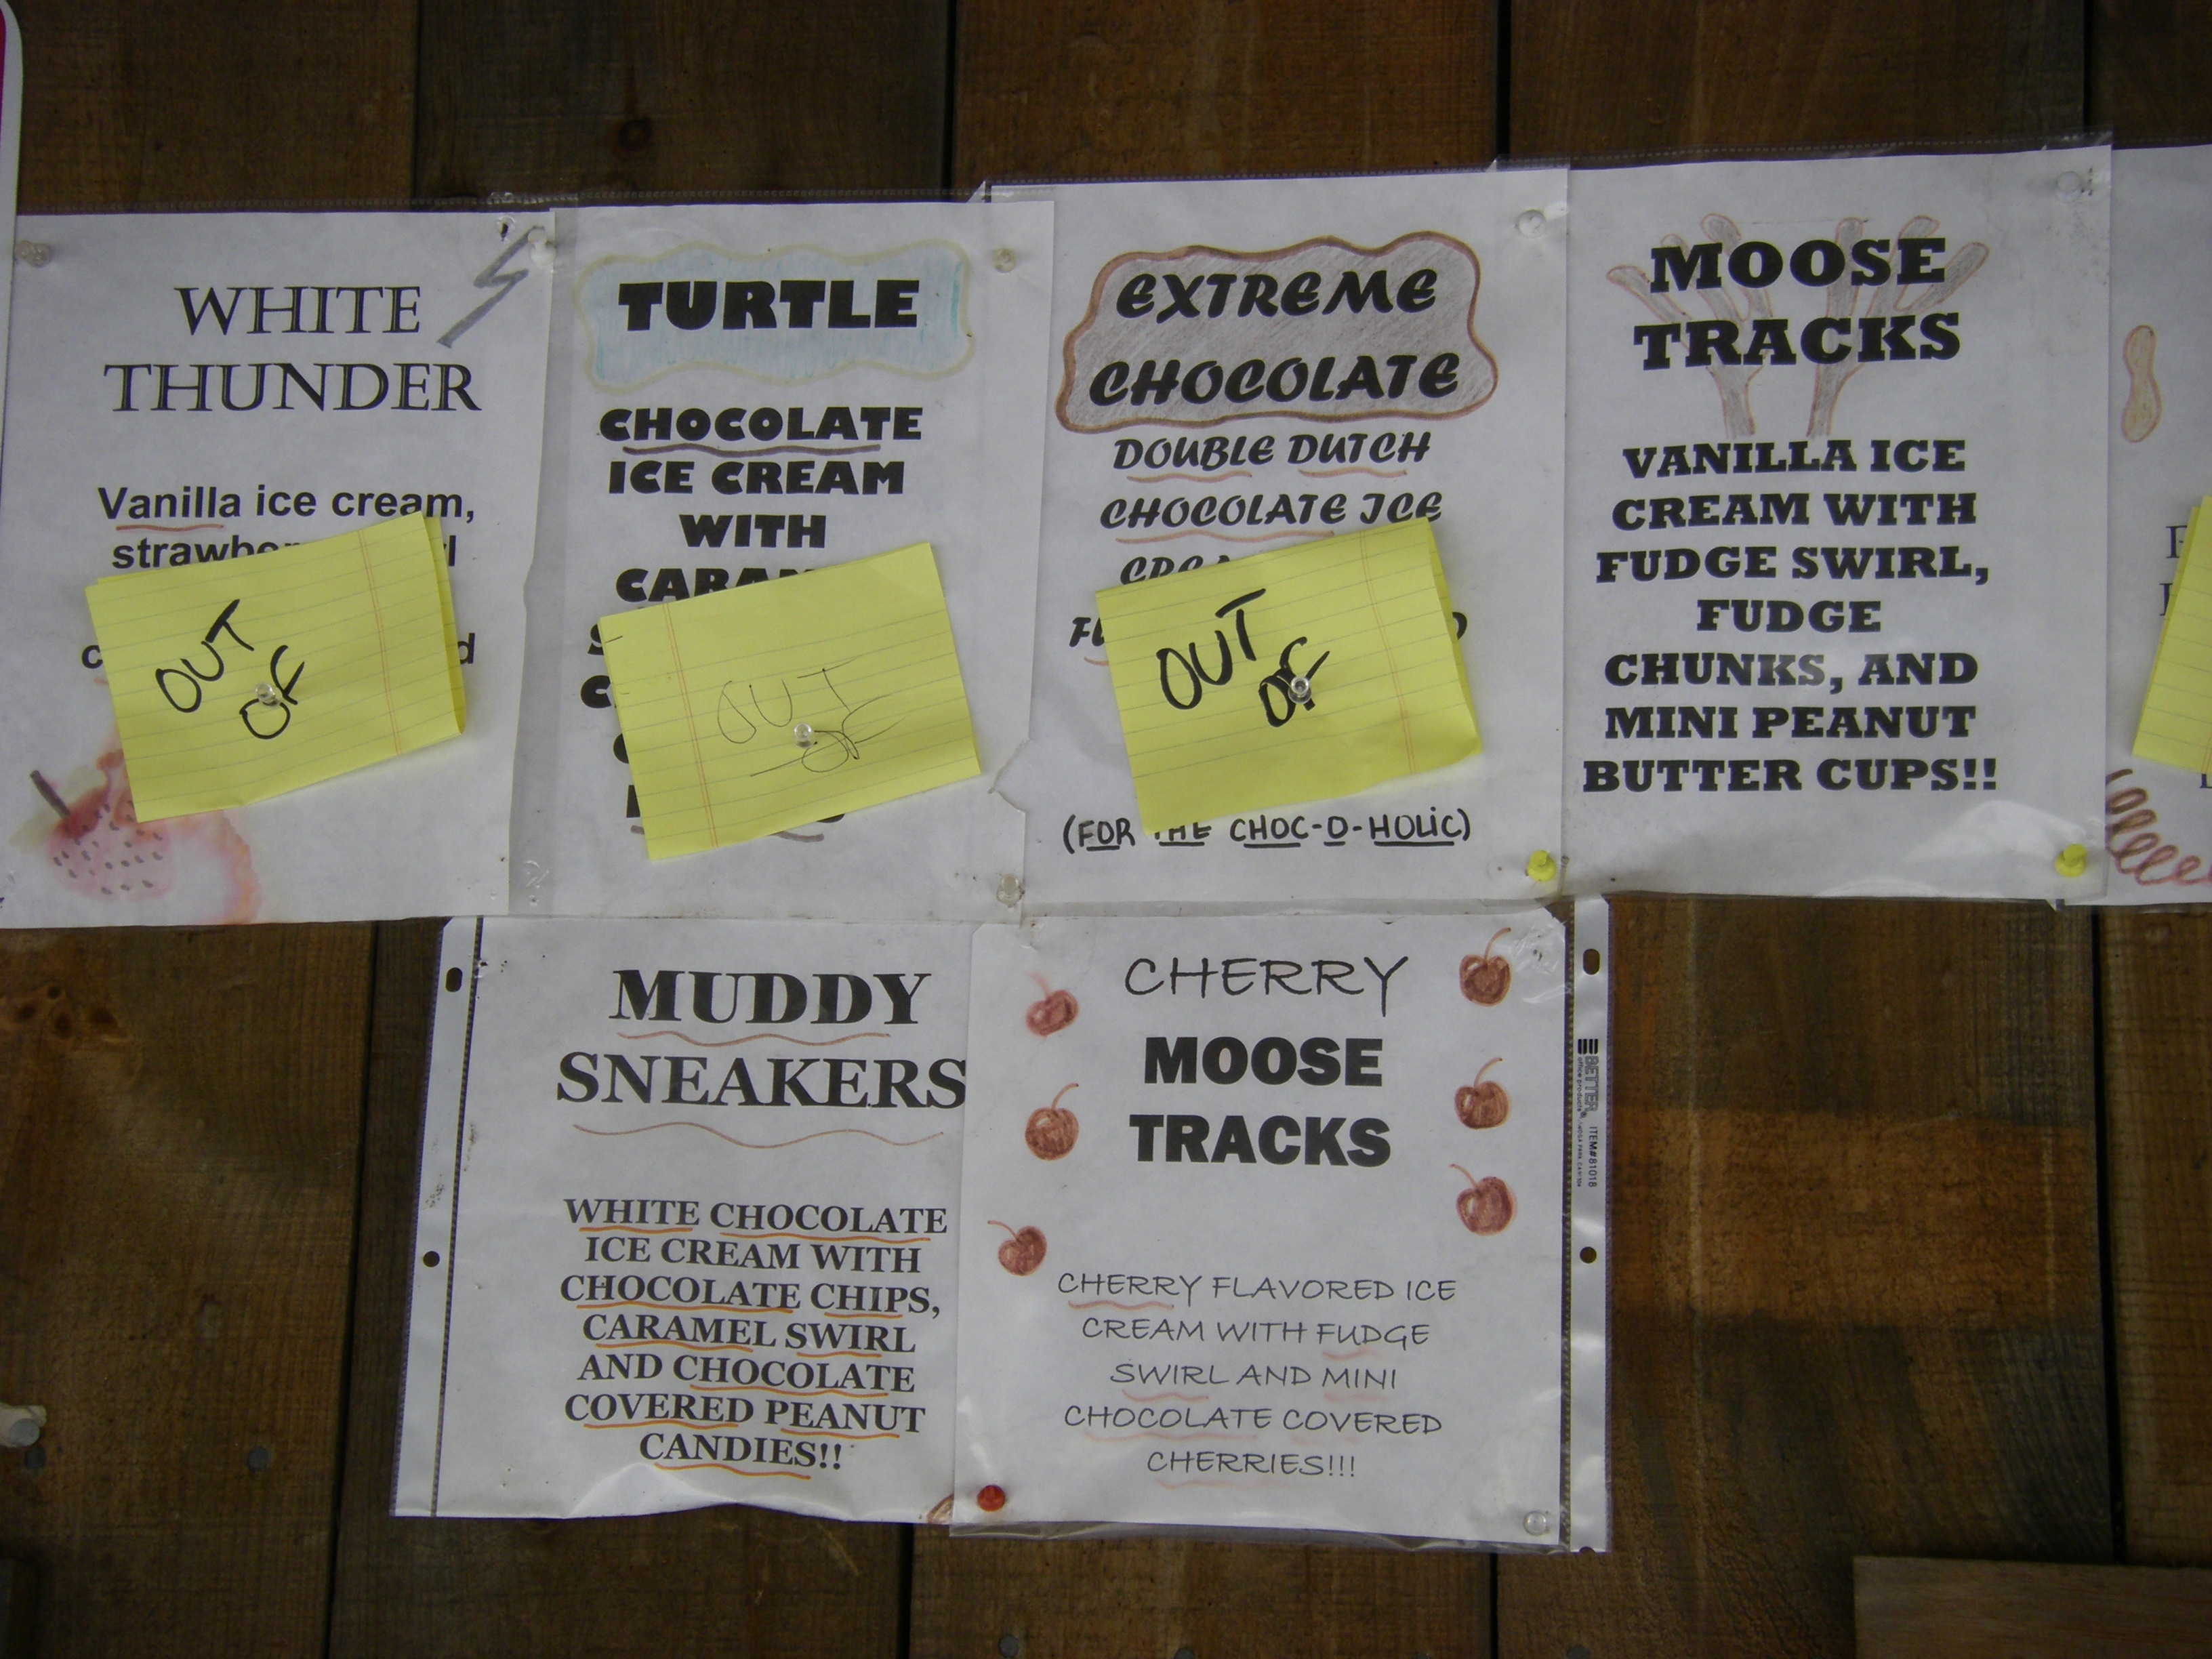 WHITE
THUNDER
Vanilla ice cream,
OUT
OF
TURTLE
CHOCOLATE
ICE CREAM
WITH
OUT
OF
EXTREME
CHOCOLATE
DOUBLE DUTCH
CHOCOLATE ICE
OUT
OF
(FOR THE CHOC-O-HOLIC)
MOOSE
TRACKS
VANILLA ICE
CREAM WITH
FUDGE SWIRL,
FUDGE
CHUNKS, AND
MINI PEANUT
BUTTER CUPS!!
MUDDY
SNEAKERS
WHITE CHOCOLATE
ICE CREAM WITH
CHOCOLATE CHIPS,
CARAMEL SWIRL
AND CHOCOLATE
COVERED PEANUT
CANDIES!!
CHERRY
MOOSE
TRACKS
CHERRY FLAVORED ICE
CREAM WITH FUDGE
SWIRL AND MINI
CHOCOLATE COVERED
CHERRIES!!!
BETTER
office products
ITEM#81018